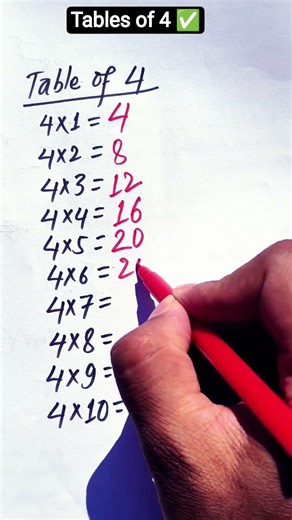 Tables of 4 ✅
Table of 4
4×1 = 4
4×2 = 8
4×3 = 12
4×4 = 16
4×5 = 20
4×6 = 2
4×7 =
4×8 =
4×9 =
4×10 =